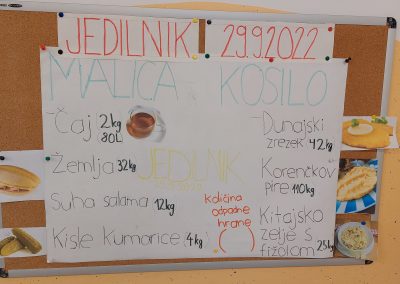 JEDILNIK 29.9.2022
MALICA
KOSILO
Čaj 2kg
80L
Žemlja 32kg
Suha salama 12kg
Kisle kumarice 4kg
JEDILNIK
količina
odpadne
hrane
Dunajski
zrezek 42kg
Korenčkov
pire 110kg
Kitajsko
zelje s
fižolom 25kg